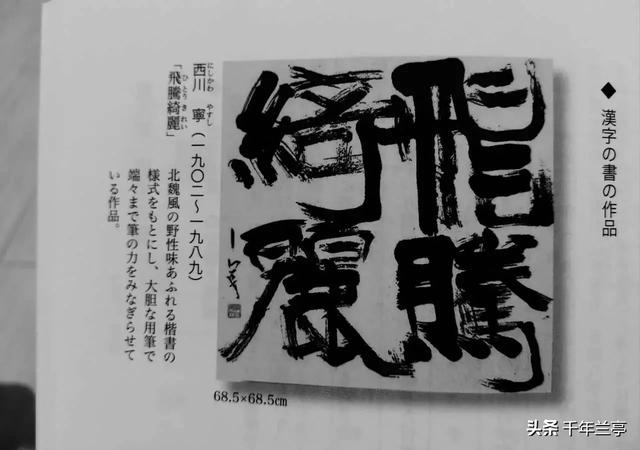 ◆漢字の書の作品
飛騰
綺麗
にしかわ やすし
西川 寧(一九〇二~一九八九)
ひとうきれい
「飛騰綺麗」
北魏風の野性味あふれる楷書の
様式をもとにし、大胆な用筆で
端々まで筆の力をみなぎらせて
いる作品。
68.5×68.5cm
头条 千年兰亭